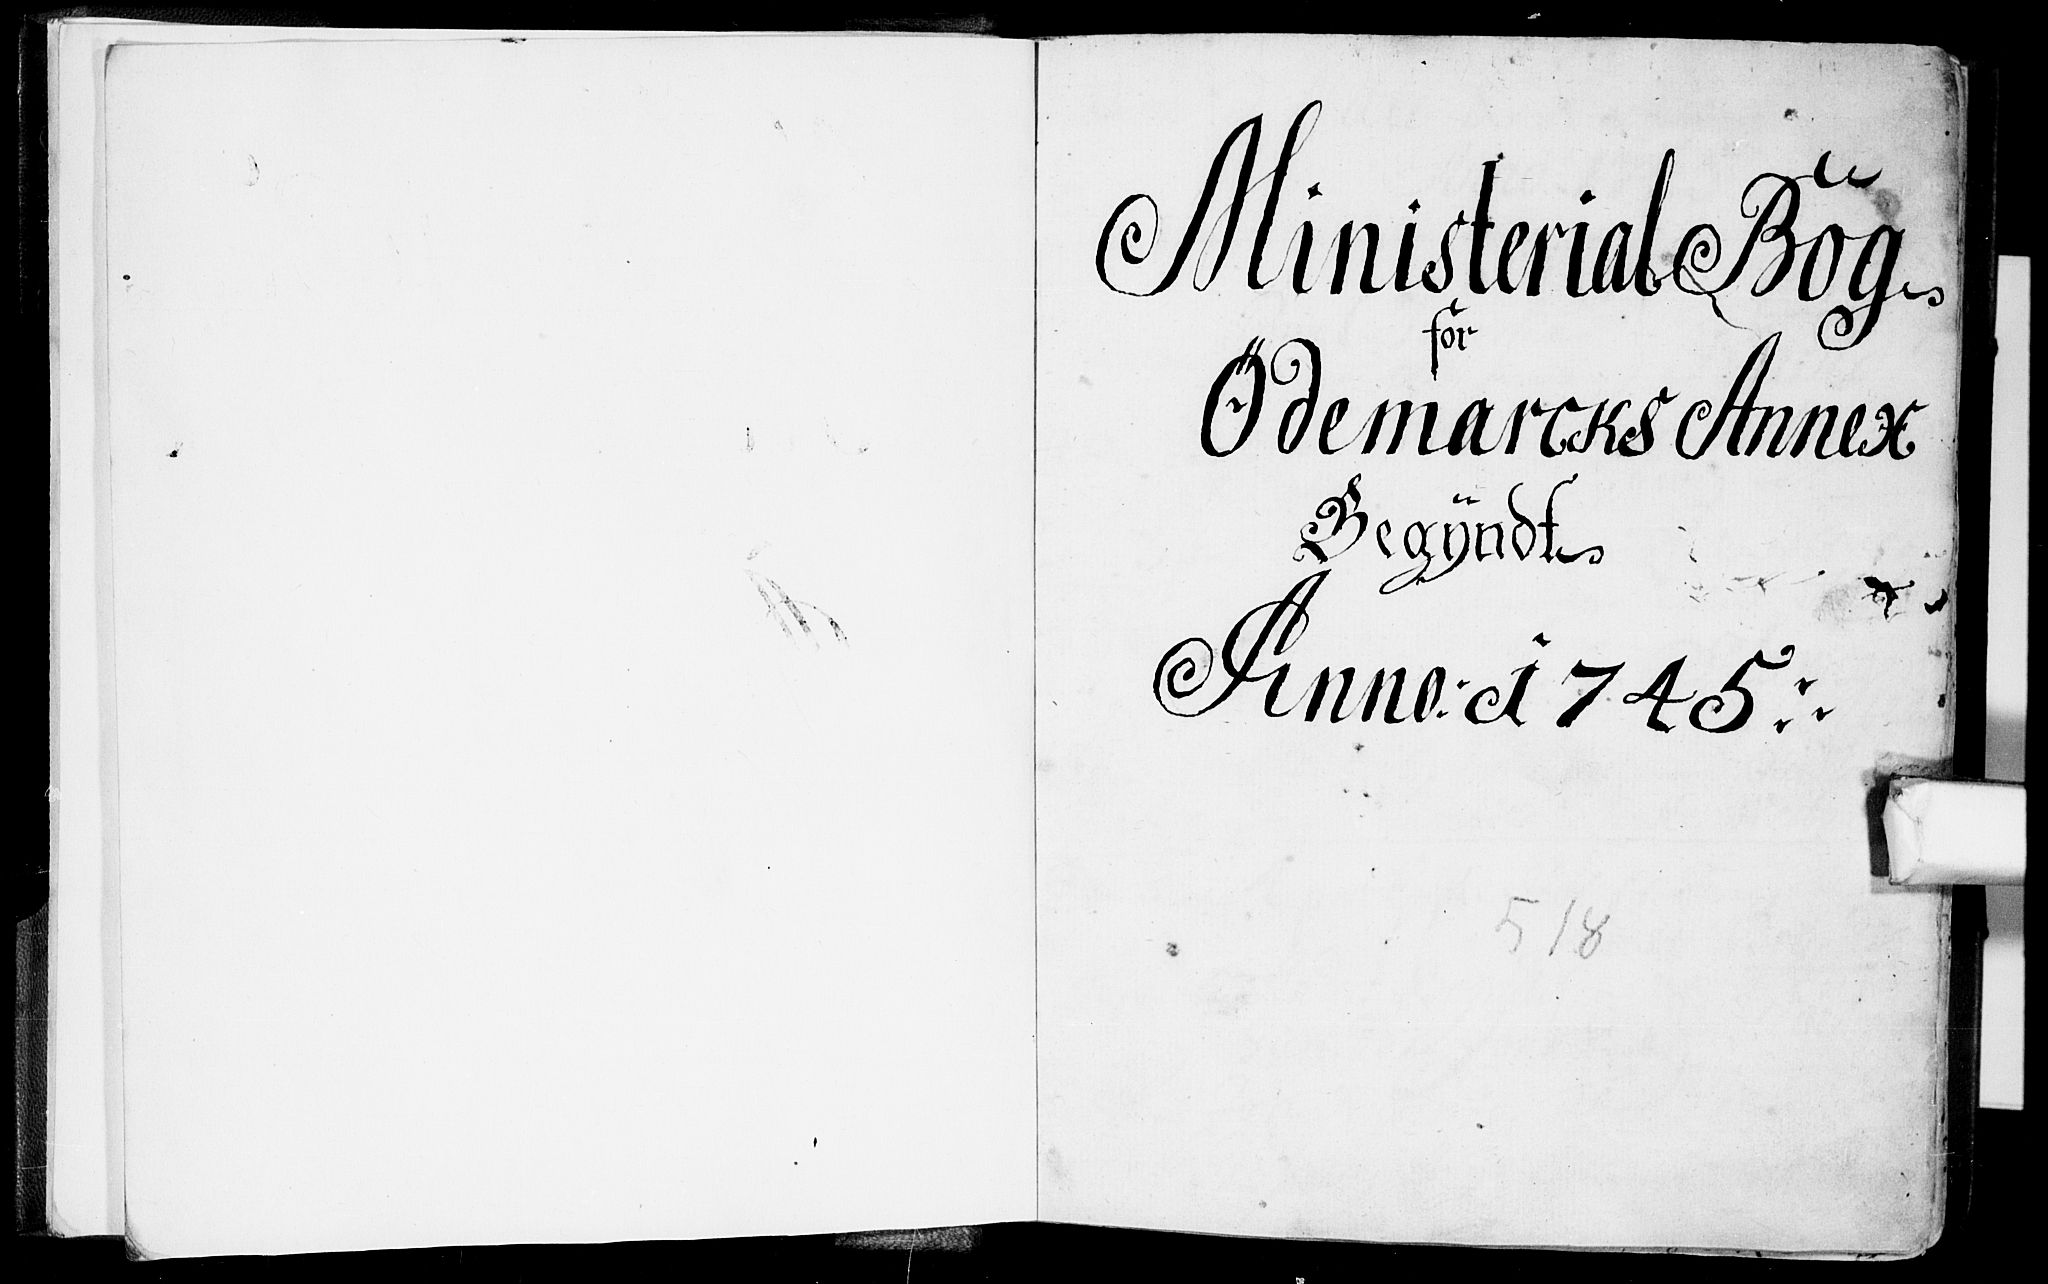 Ministerial Bog
for
Ödemarcks Annex
Begÿndt
Anno: 1745:
518